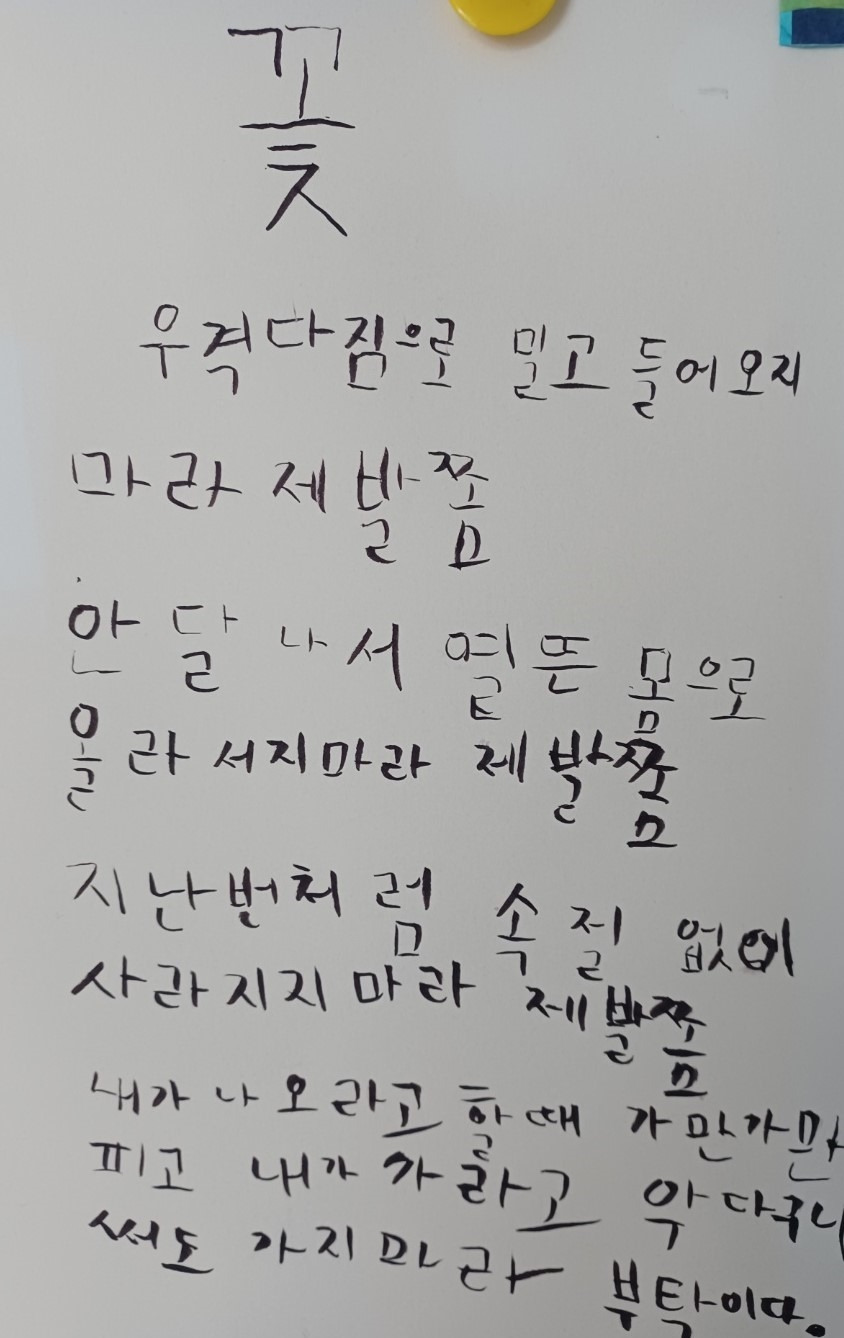 꽃
우격다짐으로 밀고 들어오지
마라 제발쫌
안달 나서 옅뜬 몸으로
올라서지마라 제발쫌
지난번처럼 속절 없이
사라지지 마라 제발쫌
내가 나오라고 할때 가만가만
피고 내가 가라고 악다구니
써도 가지마라 부탁이다.